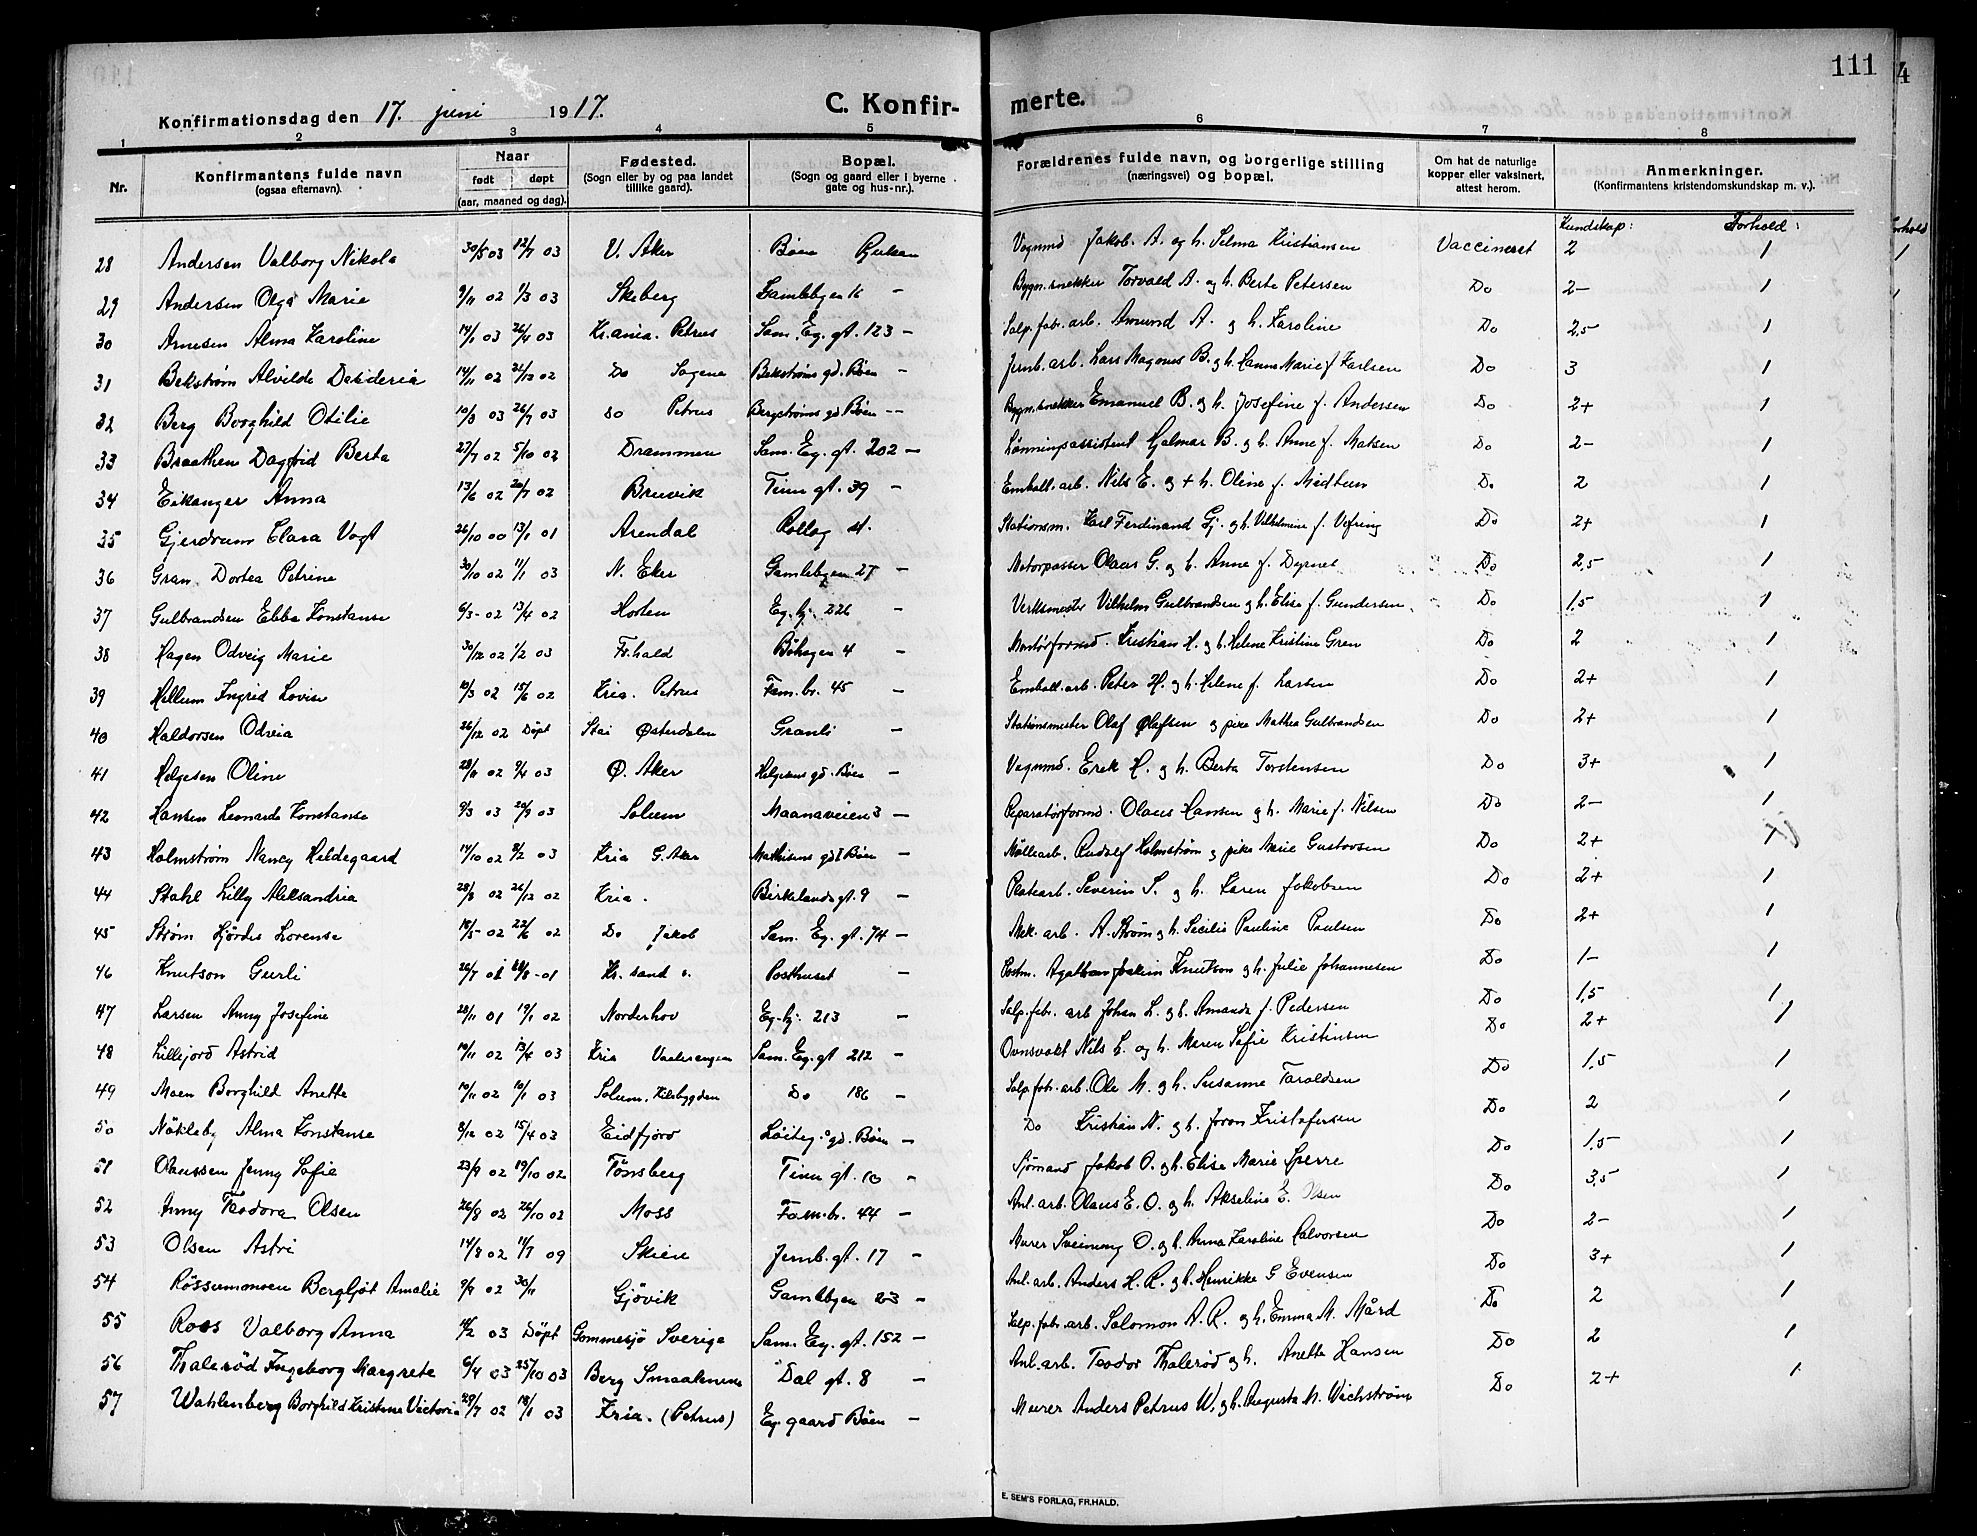 111
4
Konfirmationsdag den 17. juni 1917.
C. Konfir-
merte.
1 2 3 4 5 6 7 8
Nr.
Konfirmantens fulde navn
(ogsaa efternavn).
Naar
født døpt
(aar, maaned og dag).
Fødested.
(Sogn eller by og paa landet
tillike gaard).
Bopæl.
(Sogn og gaard eller i byerne
gate og hus-nr.).
Forældrenes fulde navn, og borgerlige stilling
(næringsvei) og bopæl.
Om hat de naturlige
kopper eller vaksinert,
attest herom.
Anmerkninger.
(Konfirmantens kristendomskundskap m. v.).
Kundskap: Forhold:
28 Andersen Valborg Nikola 30/5 03 12/7 03 V. Aker Böen Rjukan Vognmd Jakob A. og h. Selma Kristiansen Vaccineret 2 1
29 Andersen Olga Marie 9/11 02 1/3 03 Skeberg Gamlebyen 16 – Bygn.snekker Torvald A. og h. Berte Petersen Do 2– 1
30 Arnesen Alma Karoline 14/1 03 26/4 03 Kr.ania. Petrus Sam. Eg. gt. 123 – Salp. fabr. arb. Amund A. g h. Karoline Do 2,5 1
31 Bekström Alvilde Desideria 14/11 02 21/12 02 Do Sagene Bekströms gd. Böen – Jernb. arb. Lars Magnus B. g h. Hanna Marie f. Karlsen Do 3 1
32 Berg Borghild Otilie 10/3 03 26/7 03 do Petrus Bergströms gd Böen – Bygn.snekker Emanuel B. g h. Josefine f. Andersen Do 2+ 1
33 Braathen Dagfrid Berta 27/7 02 5/10 02 Drammen Sam. Eg. gt. 202 – Lønningsassistent Hjalmar B. g h. Anne f. Matsen Do 2– 1
34 Eikanger Anna 13/6 02 20/7 02 Bruvik Tinn gt. 39 – Emball. arb. Nils E. g + h. Oline f. Midttun Do 2 1
35 Gjerdrum Clara Vogt 26/10 00 13/1 01 Arendal Rollag st. Stationsm. Karl Ferdinand Gj. g h. Vilhelmine f. Vefring Do 2+ 1
36 Gran Dortea Petrine 30/10 02 11/1 03 N. Eker Gamlebyen 27 – Motorpasser Olaus G. g h. Anne f. Dyrnes Do 2,5 1
37 Gulbrandsen Ebba Konstanse 6/3 02 13/4 02 Horten Eg. hj. 226 – Verksmester Vilhelm Gulbrandsen g h. Elise f. Gundersen Do 1,5 1
38 Hagen Odveig Marie 30/12 02 1/2 03 Fr.hald Böhagen 4 – Montörformd. Kristian H. g h. Helene Kristine Gren Do 2 1
39 Hellum Ingrid Lovise 10/3 02 15/6 02 Kria. Petrus Fam. br. 45 – Emball. arb. Peter H. g h. Helene f. Larsen Do 2+ 1
40 Haldorsen Odveia 26/12 02 Döpt Stai Østerdalen Granli – Stationsmester Olaf Olafsen g pike Mathea Gulbrandsen Do 2+ 1
41 Helgesen Oline 28/8 02 9/4 03 Ø. Aker Helgesens gd. Böen – Vognmd. Erek H. g h. Berta Torstensen Do 3+ 1
42 Hansen Leonarda Konstanse 9/3 03 20/9 03 Solum Maanaveien 3 – Reparatörformd. Olaus Hansen g h. Marie f. Nilsen Do 2– 1
43 Holmström Nancy Hildegaard 14/10 02 8/2 03 Kria G. Aker Mathisens gd Böen – Møllearb. Rudolf Holmström g pike Marie Gustavsen Do 2+ 1
44 Stahl Lilly Aleksandria 28/8 02 26/12 02 Kria. Birkelands gt. 9 – Platearb. Severin S. g h. Karen Jakobsen Do 2+ 1
45 Ström Hjördis Lovense 18/5 02 22/6 02 Do Jakob Sam. Eg. gt. 74 – Mek. arb. A. Ström g h. Secilie Pauline Paulsen Do 2+ 1
46 Knutson Gurli Kr.sand s. Posthuset – Postm. Agathon Joakim Knutson g h. Julie Johannesen Do 1– 1
47 Larsen Anny Josefine 28/11 01 19/1 02 Norderhov Eg. hj. 213 – Salp. fabr. arb Johan L. g h. Amanda f. Pedersen Do 1,5 1
48 Lillejord Astrid 10/11 02 13/4 03 Kria Vaalerengen Sam. Eg. gt 212 – Ovnsvakt Nils L. og h. Maren Sofie Kristinsen Do 2+ 1
49 Moen Borghild Anette 10/11 02 10/1 03 Solum. Kilebygden Do 186 – Salp. fabr. arb. Ole M. g h. Susanne Taraldsen Do 1,5 1
50 Nökleby Alma Konstanse 8/12 02 15/4 03 Eidfjord gd. Böen – Do Kristian N. g h. Joran Kristofersen Do 2 1
51 Olaussen Jenny Sofie 23/9 02 19/10 02 Tönsberg Tinn gt. 10 – Sjömand Jakob O. g h. Elise Marie Sperre Do 1,5 1
52 Anny Teodora Olsen 26/8 02 26/10 02 Moss Fam. br. 44 – Anl. arb. Olaus E. O. g h. Akseline E. Olsen Do 3,5 1
53 Olsen Astri 14/8 02 11/7 09 Skien Jernb. gt. 17 – Murer Sveinung O. g h. Anna Karoline Halvorsen Do 2– 1
54 Røssummoen Bergljot Amalie 9/9 02 30/11 Gjövik Gamlebyen 23 – Anl. arb. Anders H. R. g h. Henrikke G Evensen Do 3+ 1
55 Roos Valborg Anna 18/2 03 Döpt Gommesjö Sverige Sam. Eg. gt. 152 – Salp. fabr. arb. Salomon A. R. g h. Emma M. Mård Do 2 1
56 Thaleröd Ingeborg Margrete 6/4 03 25/10 03 Berg Smaalenene Dal gt. 8 – Anl. arb. Teodor Thaleröd g h. Anette Hansen Do 2 1
57 Wahlenberg Borghild Kristene Victoria 29/7 02 18/1 03 Kria. (Petrus) Eg. gaard Böen – Murer Anders Petrus W. g h. Augusta M. Vichström Do 2+ 1
E. SEM'S FORLAG, FR.HALD.